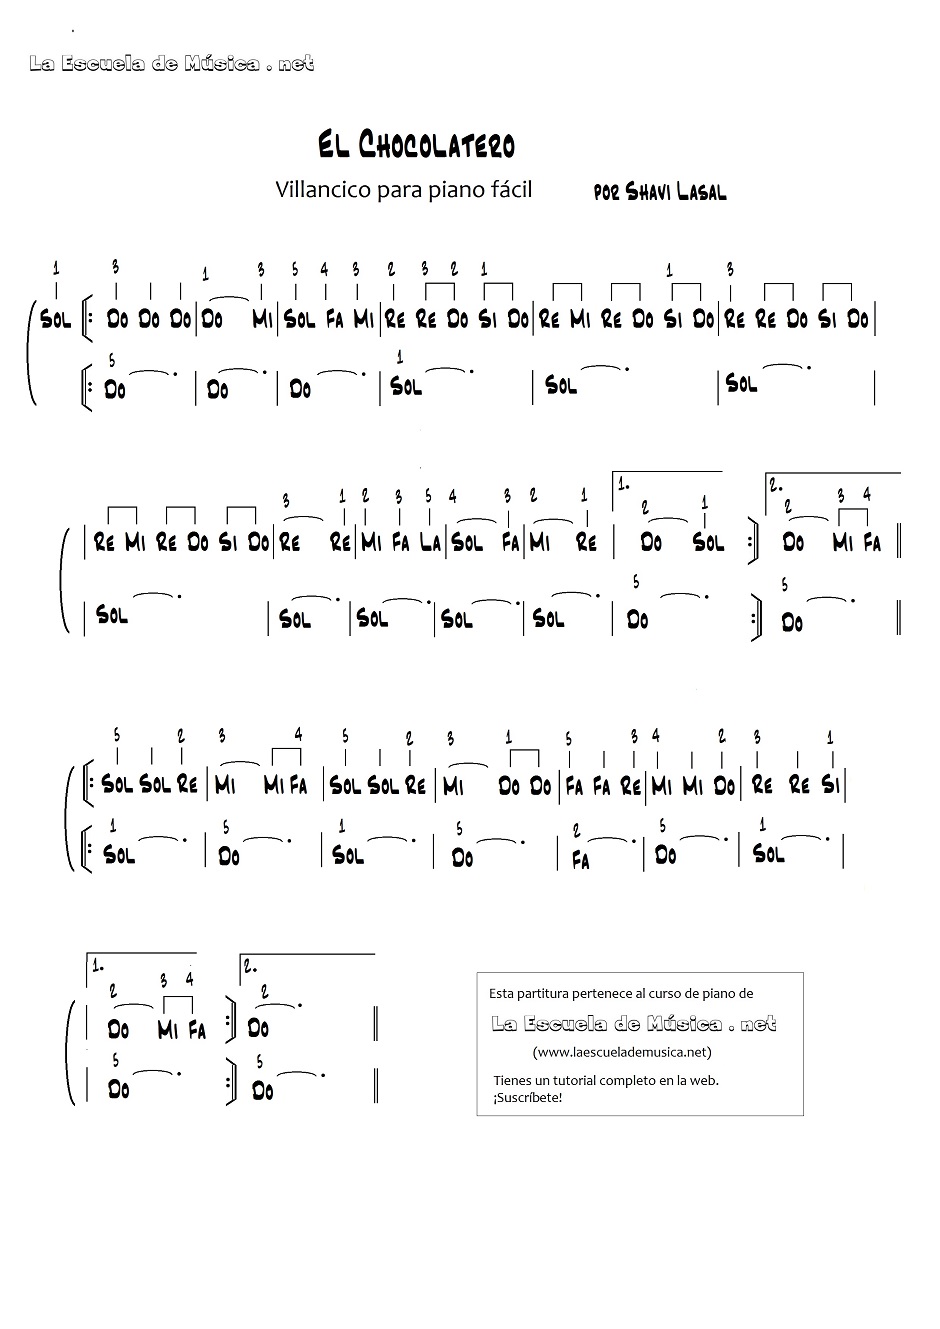 La Escuela de Música . net
El Chocolatero
Villancico para piano fácil por Shavi Lasal
1 3 1 3 5 4 3 2 3 2 1 1 3
SOL DO DO DO DO MI SOL FA MI RE RE DO SI DO RE MI RE DO SI DO RE RE DO SI DO
5 1
DO DO DO SOL SOL SOL
1. 2.
3 1 2 3 5 4 3 2 1 2 1 2 3 4
RE MI RE DO SI DO RE RE MI FA LA SOL FA MI RE DO SOL DO MI FA
5 5
SOL SOL SOL SOL SOL DO DO
5 2 3 4 5 2 3 1 5 3 4 2 3 1
SOL SOL RE MI MI FA SOL SOL RE MI DO DO FA FA RE MI MI DO RE RE SI
1 5 1 5 2 5 1
SOL DO SOL DO FA DO SOL
1. 2.
2 3 4 2
DO MI FA DO
5 5
DO DO
Esta partitura pertenece al curso de piano de
La Escuela de Música . net
(www.laescuelademusica.net)
Tienes un tutorial completo en la web.
¡Suscríbete!